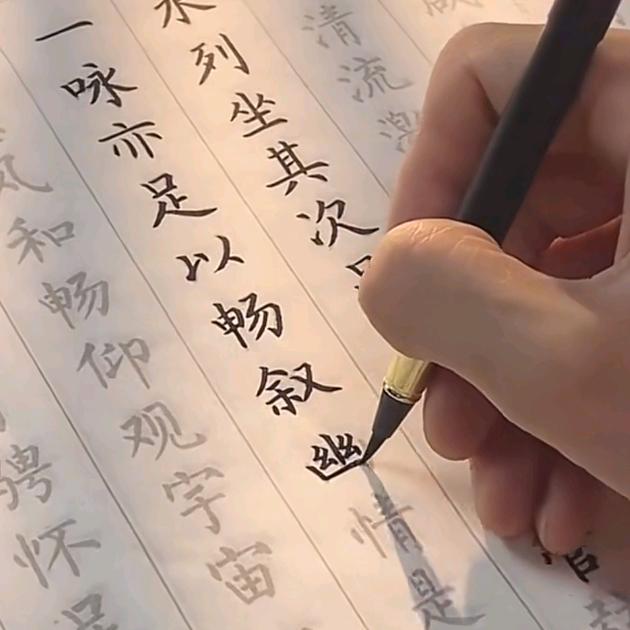 清流激
水列坐其次
一咏亦足以畅叙幽情是
気和畅仰观宇宙
骋怀